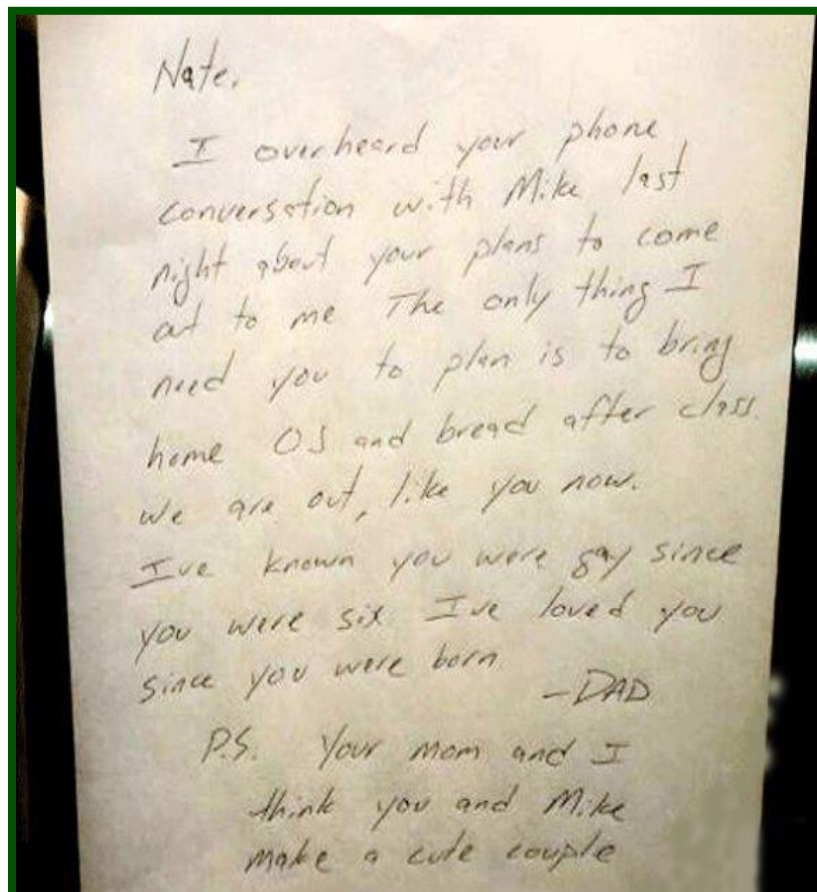 Nate,
I overheard your phone
conversation with Mike last
night about your plans to come
out to me The only thing I
need you to plan is to bring
home OJ and bread after class.
We are out, like you now.
I've known you were gay since
you were six I've loved you
since you were born
-DAD
P.S. Your mom and I
think you and Mike
make a cute couple